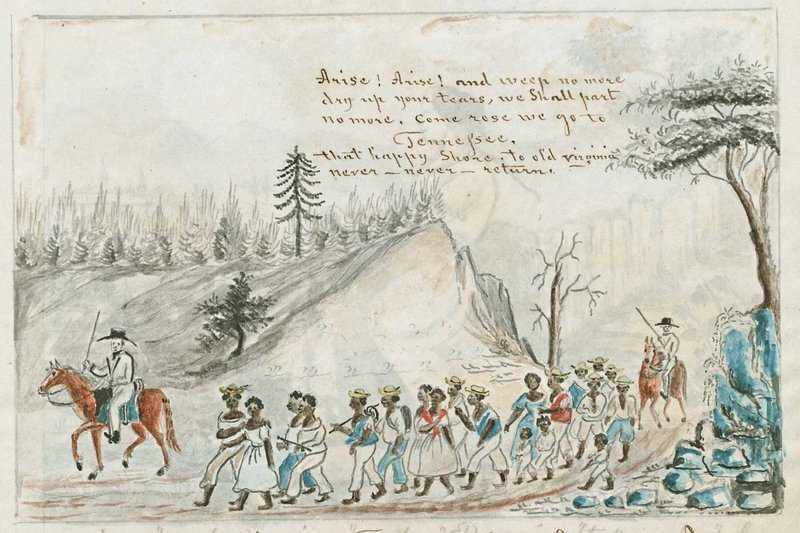 Arise! Arise! and weep no more
dry up your tears, we Shall part
no more. Come rose we go to
Tennessee.
that happy Shore. to old virginia
never — never — return.